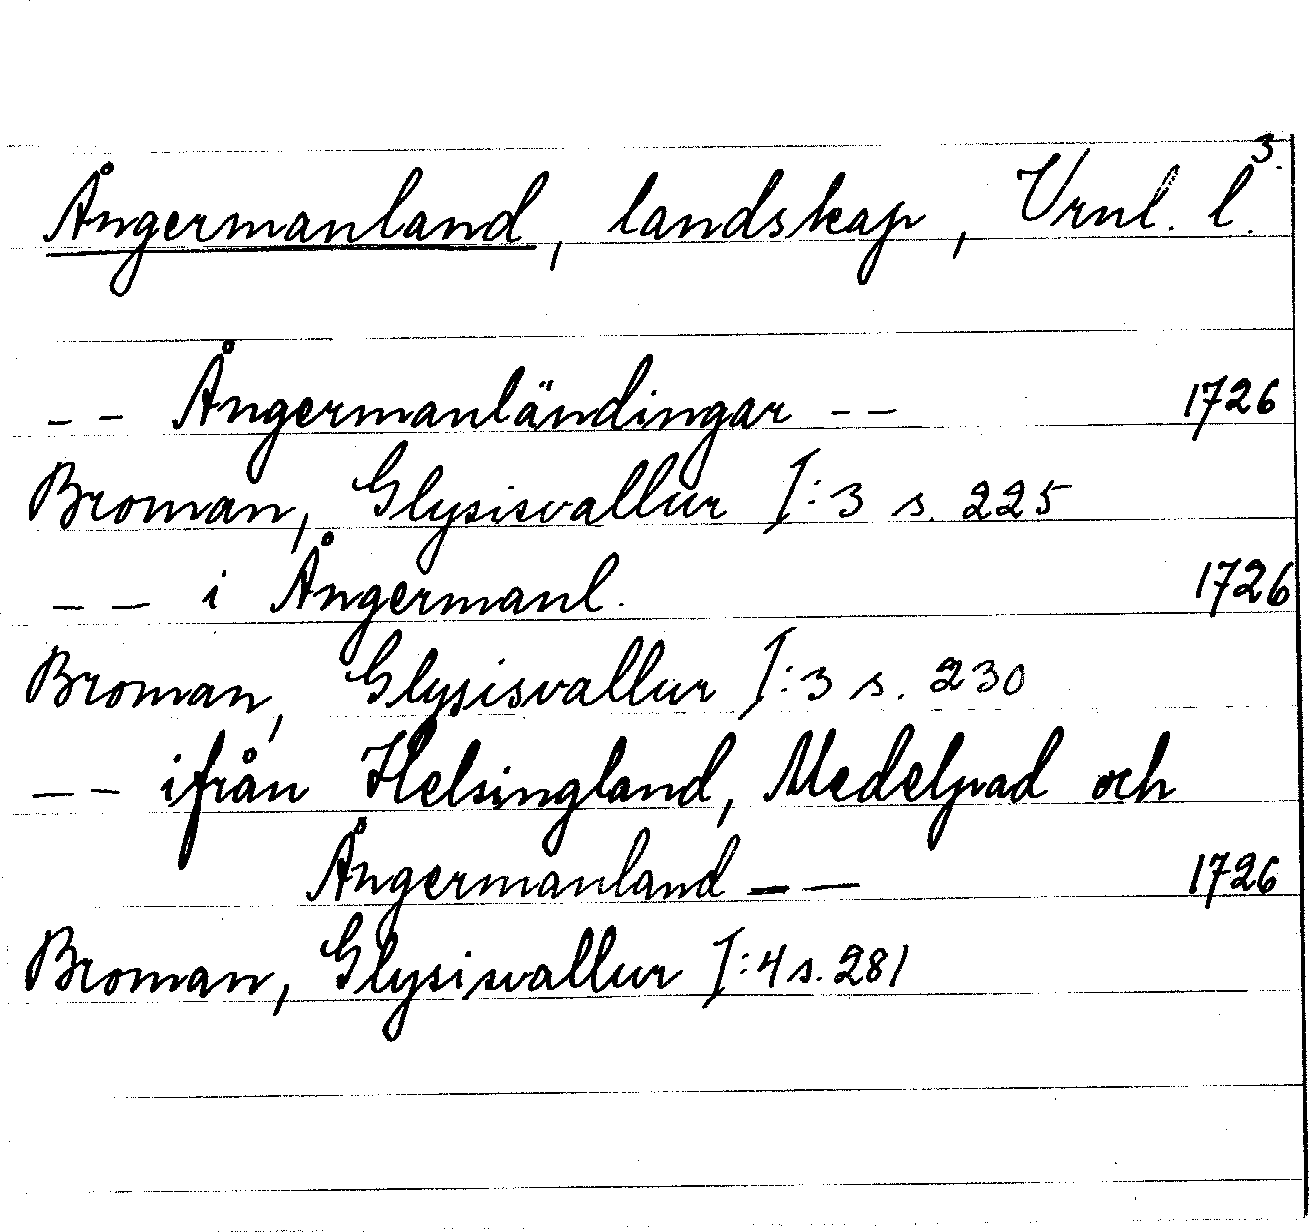 3.
Ångermanland, landskap, Vrnl. l.
-- Ångermanländingar -- 1726
Broman, Glysisvallur I:3 s. 225
-- i Ångermanl. 1726
Broman, Glysisvallur I:3 s. 230
-- ifrån Helsingland, Medelpad och
Ångermanland -- 1726
Broman, Glysisvallur I:4 s. 281